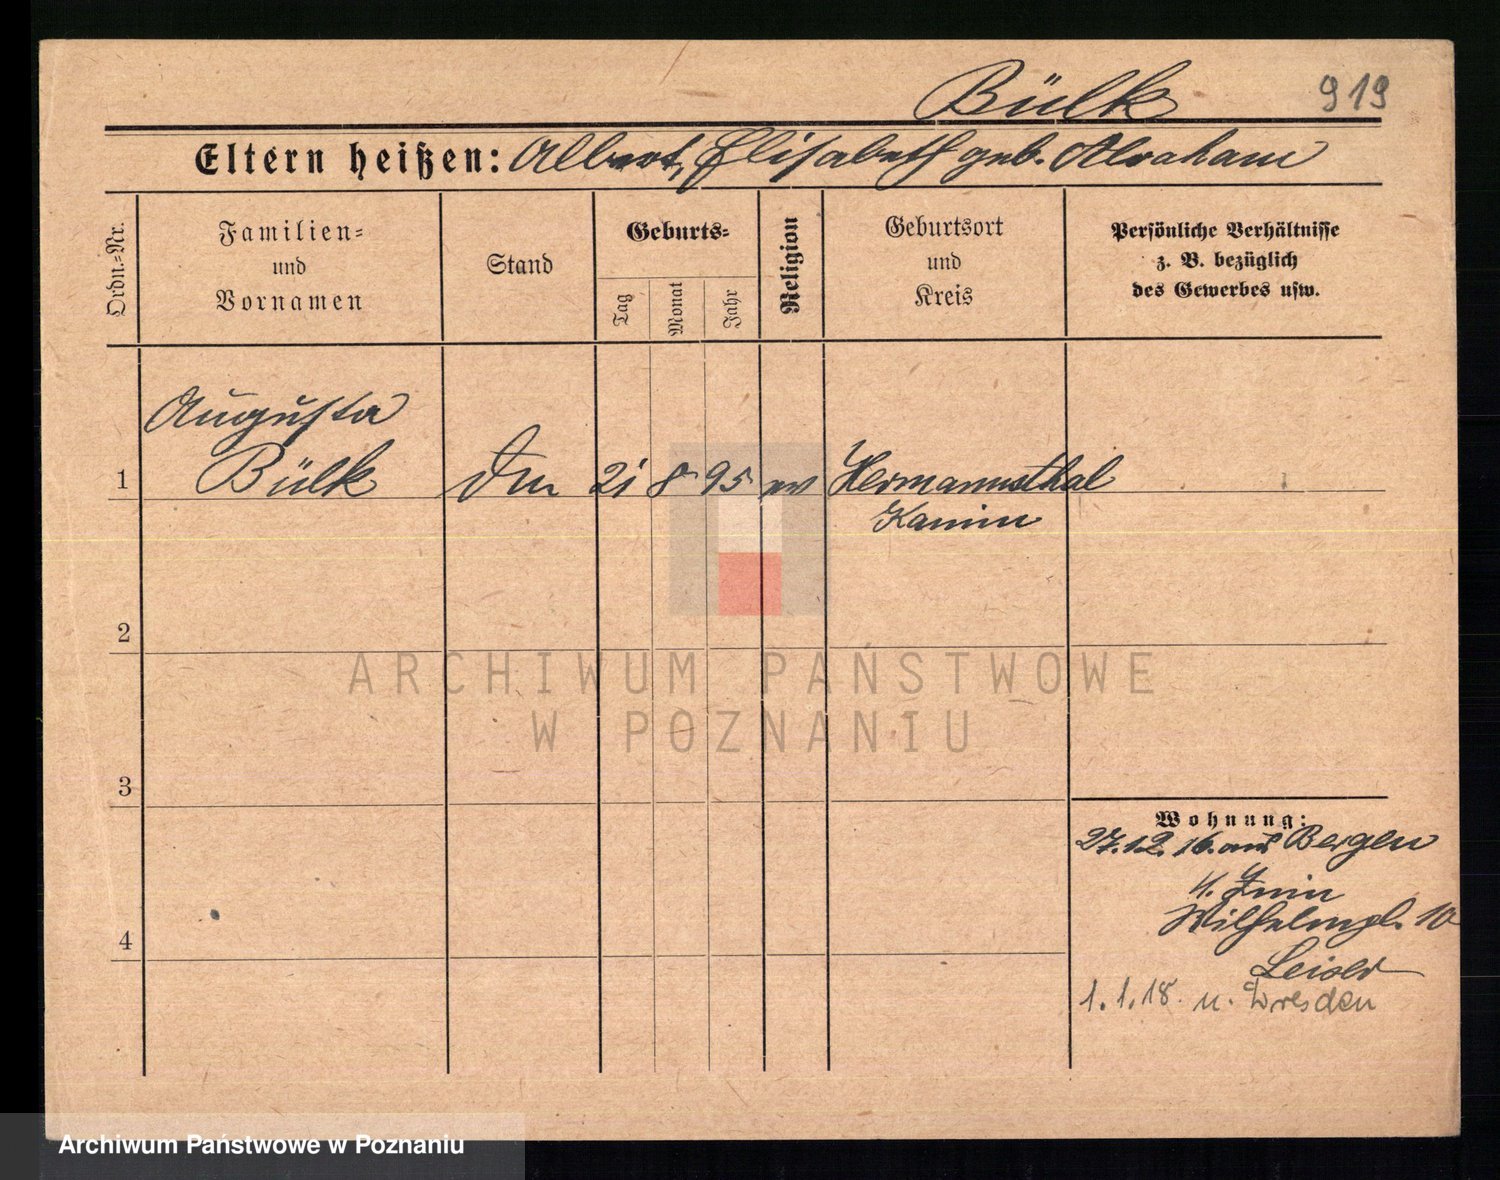 Bülk 919
Eltern heißen: Albert, Elisabeth geb. Abraham
Ordn.=Nr.
Familien=
und
Vornamen
Stand
Geburts=
Tag
Monat
Jahr
Religion
Geburtsort
und
Kreis
Persönliche Verhältnisse
z. B. bezüglich
des Gewerbes usw.
Augusta
1 Bülk 21 8 95 ev Hermannsthal
Kamin
2
3
4
Wohnung:
27.12.16. aus Bergen
Wilhelmpl. 10
1.1.18. n. Dresden
ARCHIWUM PAŃSTWOWE
W POZNANIU
Archiwum Państwowe w Poznaniu